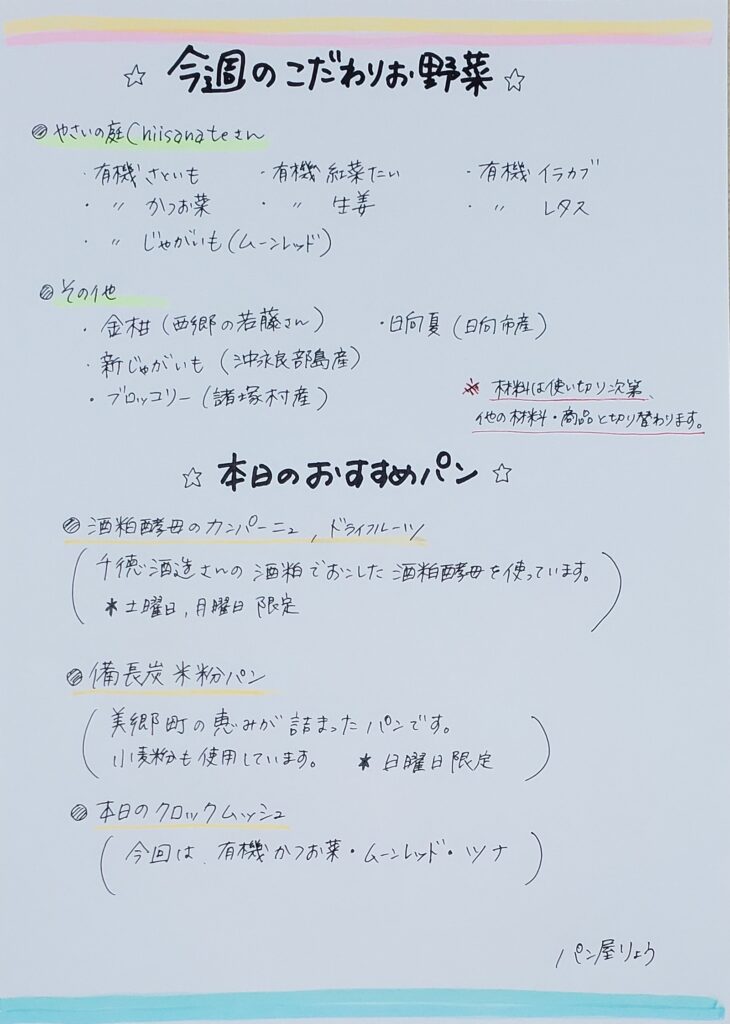 ☆ 今週のこだわりお野菜 ☆
◎ やさいの庭Chiisanateさん
・有機 さといも ・有機 紅菜たい ・有機 イラカブ
・〃 かつお菜 ・〃 生姜 ・〃 レタス
・〃 じゃがいも(ムーンレッド)
◎ その他
・金柑(西郷の若藤さん) ・日向夏(日向市産)
・新じゃがいも(沖永良部島産)
・ブロッコリー(諸塚村産)
※ 材料は使い切り次第、
他の材料・商品と切り替わります。
☆ 本日のおすすめパン ☆
◎ 酒粕酵母のカンパーニュ , ドライフルーツ
(千徳酒造さんの酒粕でおこした酒粕酵母を使っています。
*土曜日,月曜日 限定)
◎ 備長炭 米粉パン
(美郷町の恵みが詰まったパンです。
小麦粉も使用しています。 *日曜日限定)
◎ 本日のクロックムッシュ
(今回は、有機かつお菜・ムーンレッド・ツナ)
パン屋りょう